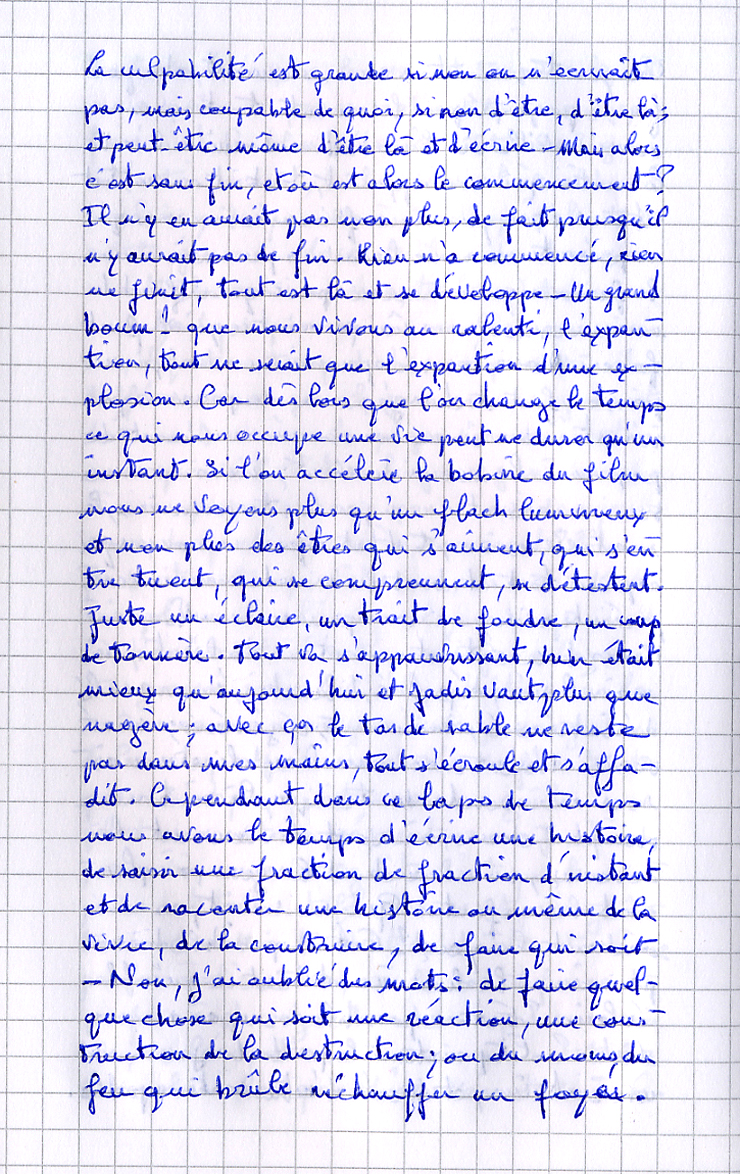 La culpabilité est grande si non on n'écrirait
pas, mais coupable de quoi, si non d'être, d'être là;
et peut-être même d'être là et d'écrire - Mais alors
c'est sans fin, et où est alors le commencement?
Il n'y en aurait pas non plus, de fait puisqu'il
n'y aurait pas de fin. Rien n'a commencé, rien
ne finit, tout est là et se développe - Un grand
boum! que nous vivons au ralenti, l'expan-
tion, tout ne serait que l'expantion d'une ex-
plosion. Car dès lors que l'on change le temps
ce qui nous occupe une vie peut ne durer qu'un
instant. Si l'on accélère la bobine du film
nous ne voyons plus qu'un flach lumineux
et non plus des êtres qui s'aiment, qui s'en
tre tuent, qui se comprennent, se détestent.
Juste un éclaire, un trait de foudre, un coup
de tonnère. Tout va s'appauvrissant, hier était
mieux qu'aujourd'hui et jadis vaut plus que
nagère; avec ça le tas de sable ne reste
pas dans mes mains, tout s'écroule et s'affa-
dit. Cependant dans ce laps de temps
nous avons le temps d'écrire une histoire,
de saisir une fraction de fraction d'instant
et de raconter une histoire ou même de la
vivre, de la construire, de faire qui soit
- Non, j'ai oublié des mots: de faire quel-
que chose qui soit une réaction, une cons-
truction de la destruction; ou du moins du
feu qui brûle réchauffer un foyer.